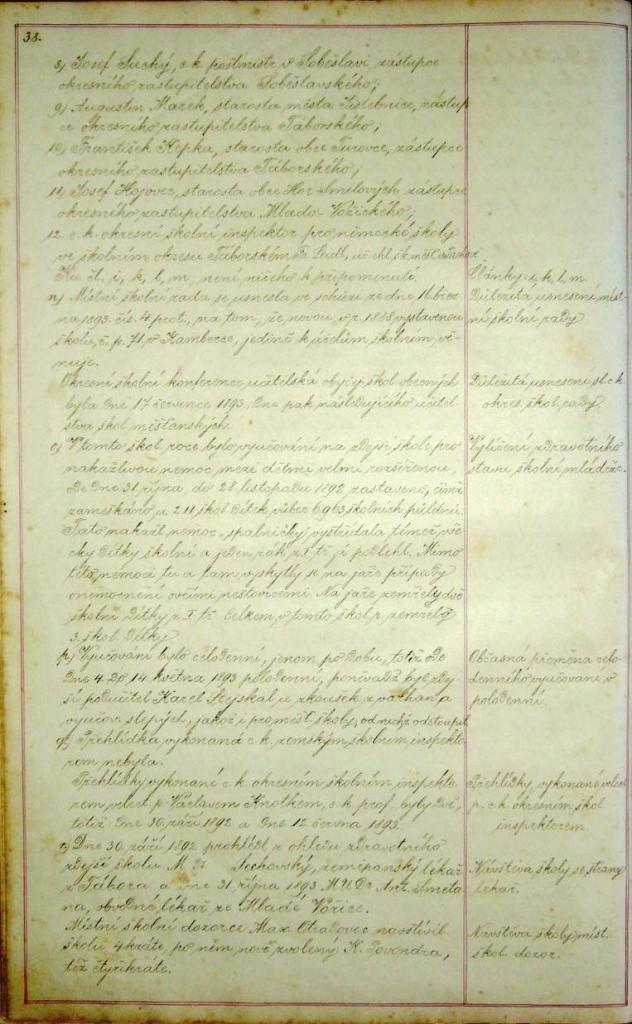 38.
8) Josef Suchý, c.k. poštmistr v Soběslavi zástupce
okresního zastupitelstva Soběslavského;
9) Augustin Marek, starosta města Jistebnice, zástup
ce okresního zastupitelstva Táborského;
10) František Kepka, starosta obce Turovce, zástupce
okresního zastupitelstva Táborského;
11) Josef Hojovec, starosta obce Hor Smilových zástupce
okresního zastupitelstva Mlado-Vožického;
12 c.k. okresní školní inspektor pro německé školy
ve školním okresu Táborském Fr. Seidl,
Ku čl. i, k, l, m, není ničeho k připomenutí.
n) Místní školní rada se usnesla ve schůzi ze dne 16. břez
na 1893 čís. 4 prot., na tom, že novou, v r. 1888 vystavenou
školu, č. p. 71 v Kamberce, jedině k účelům školním vě-
nuje.
Okresní školní konference učitelská obyčej. škol obecných
byla dne 17 července 1893, dne pak následujícího učitel
stva škol měšťanských.
o) V tomto škol. roce bylo vyučování na zdejší škole pro
nakažlivou nemoc mezi dětmi velmi rozšířenou,
ode dne 31. října, do 28. listopadu 1892 zastaveno, čímž
zameškáno u 211 škol. dítek vůbec 6963 školních půldnů.
Tato nakažl. nemoc, spalničky, vystřídala téměř vše
cky dítky školní a jeden žák z I. tř. jí podlehl. Mimo
této nemoci tu a tam vyskytly se na jaře případy
onemocnění ovčími neštovicemi. Na jaře zemřely dvě
školní dítky z I. tř. Celkem v tomto škol. r. zemřely
3. škol. dítky.
p) Vyučování bylo celodenní, jenom po dobu, totiž ode
dne 4. do 14. května 1893 polodenní, poněvadž byl zdej-
ší podučitel Karel Stejskal u zkoušek z
vyučov. slepých, jakož i pro místo školy, od nichž odstoupil.
q) Přehlídka vykonaná c.k. zemským školním inspekto
rem nebyla.
Přehlídky vykonané c.k. okresním školním inspekto
rem, velect. p. Václavem Knotkem, c.k. prof. byly dvě,
totiž dne 30. září 1892 a dne 12 června 1893.
r) Dne 30. září 1892 prohlédl z ohledu zdravotního
zdejší školu M Dr Nechovský, zeměpanský lékař
z Tábora a dne 31. října 1893 MUDr Ant. Smeta
na, obvodní lékař ze Mladé Vožice.
Místní školní dozorce Max Otradovec navštívil
školu 4kráte, po něm nově zvolený K. Povondra,
též čtyřikráte.
Články: i, k, l, m.
Důležitá usnesení míst-
ní školní rady
Důležitá usnesení sl. c.k.
okres. škol. rady
Vylíčení zdravotního
stavu školní mládeže.
Občasná přeměna celo-
denního vyučování v
polodenní.
Přehlídky, vykonané velect.
p. c.k. okresním škol.
inspektorem
Návštěva školy se strany
lékař.
Návštěva školy míst.
škol. dozor.